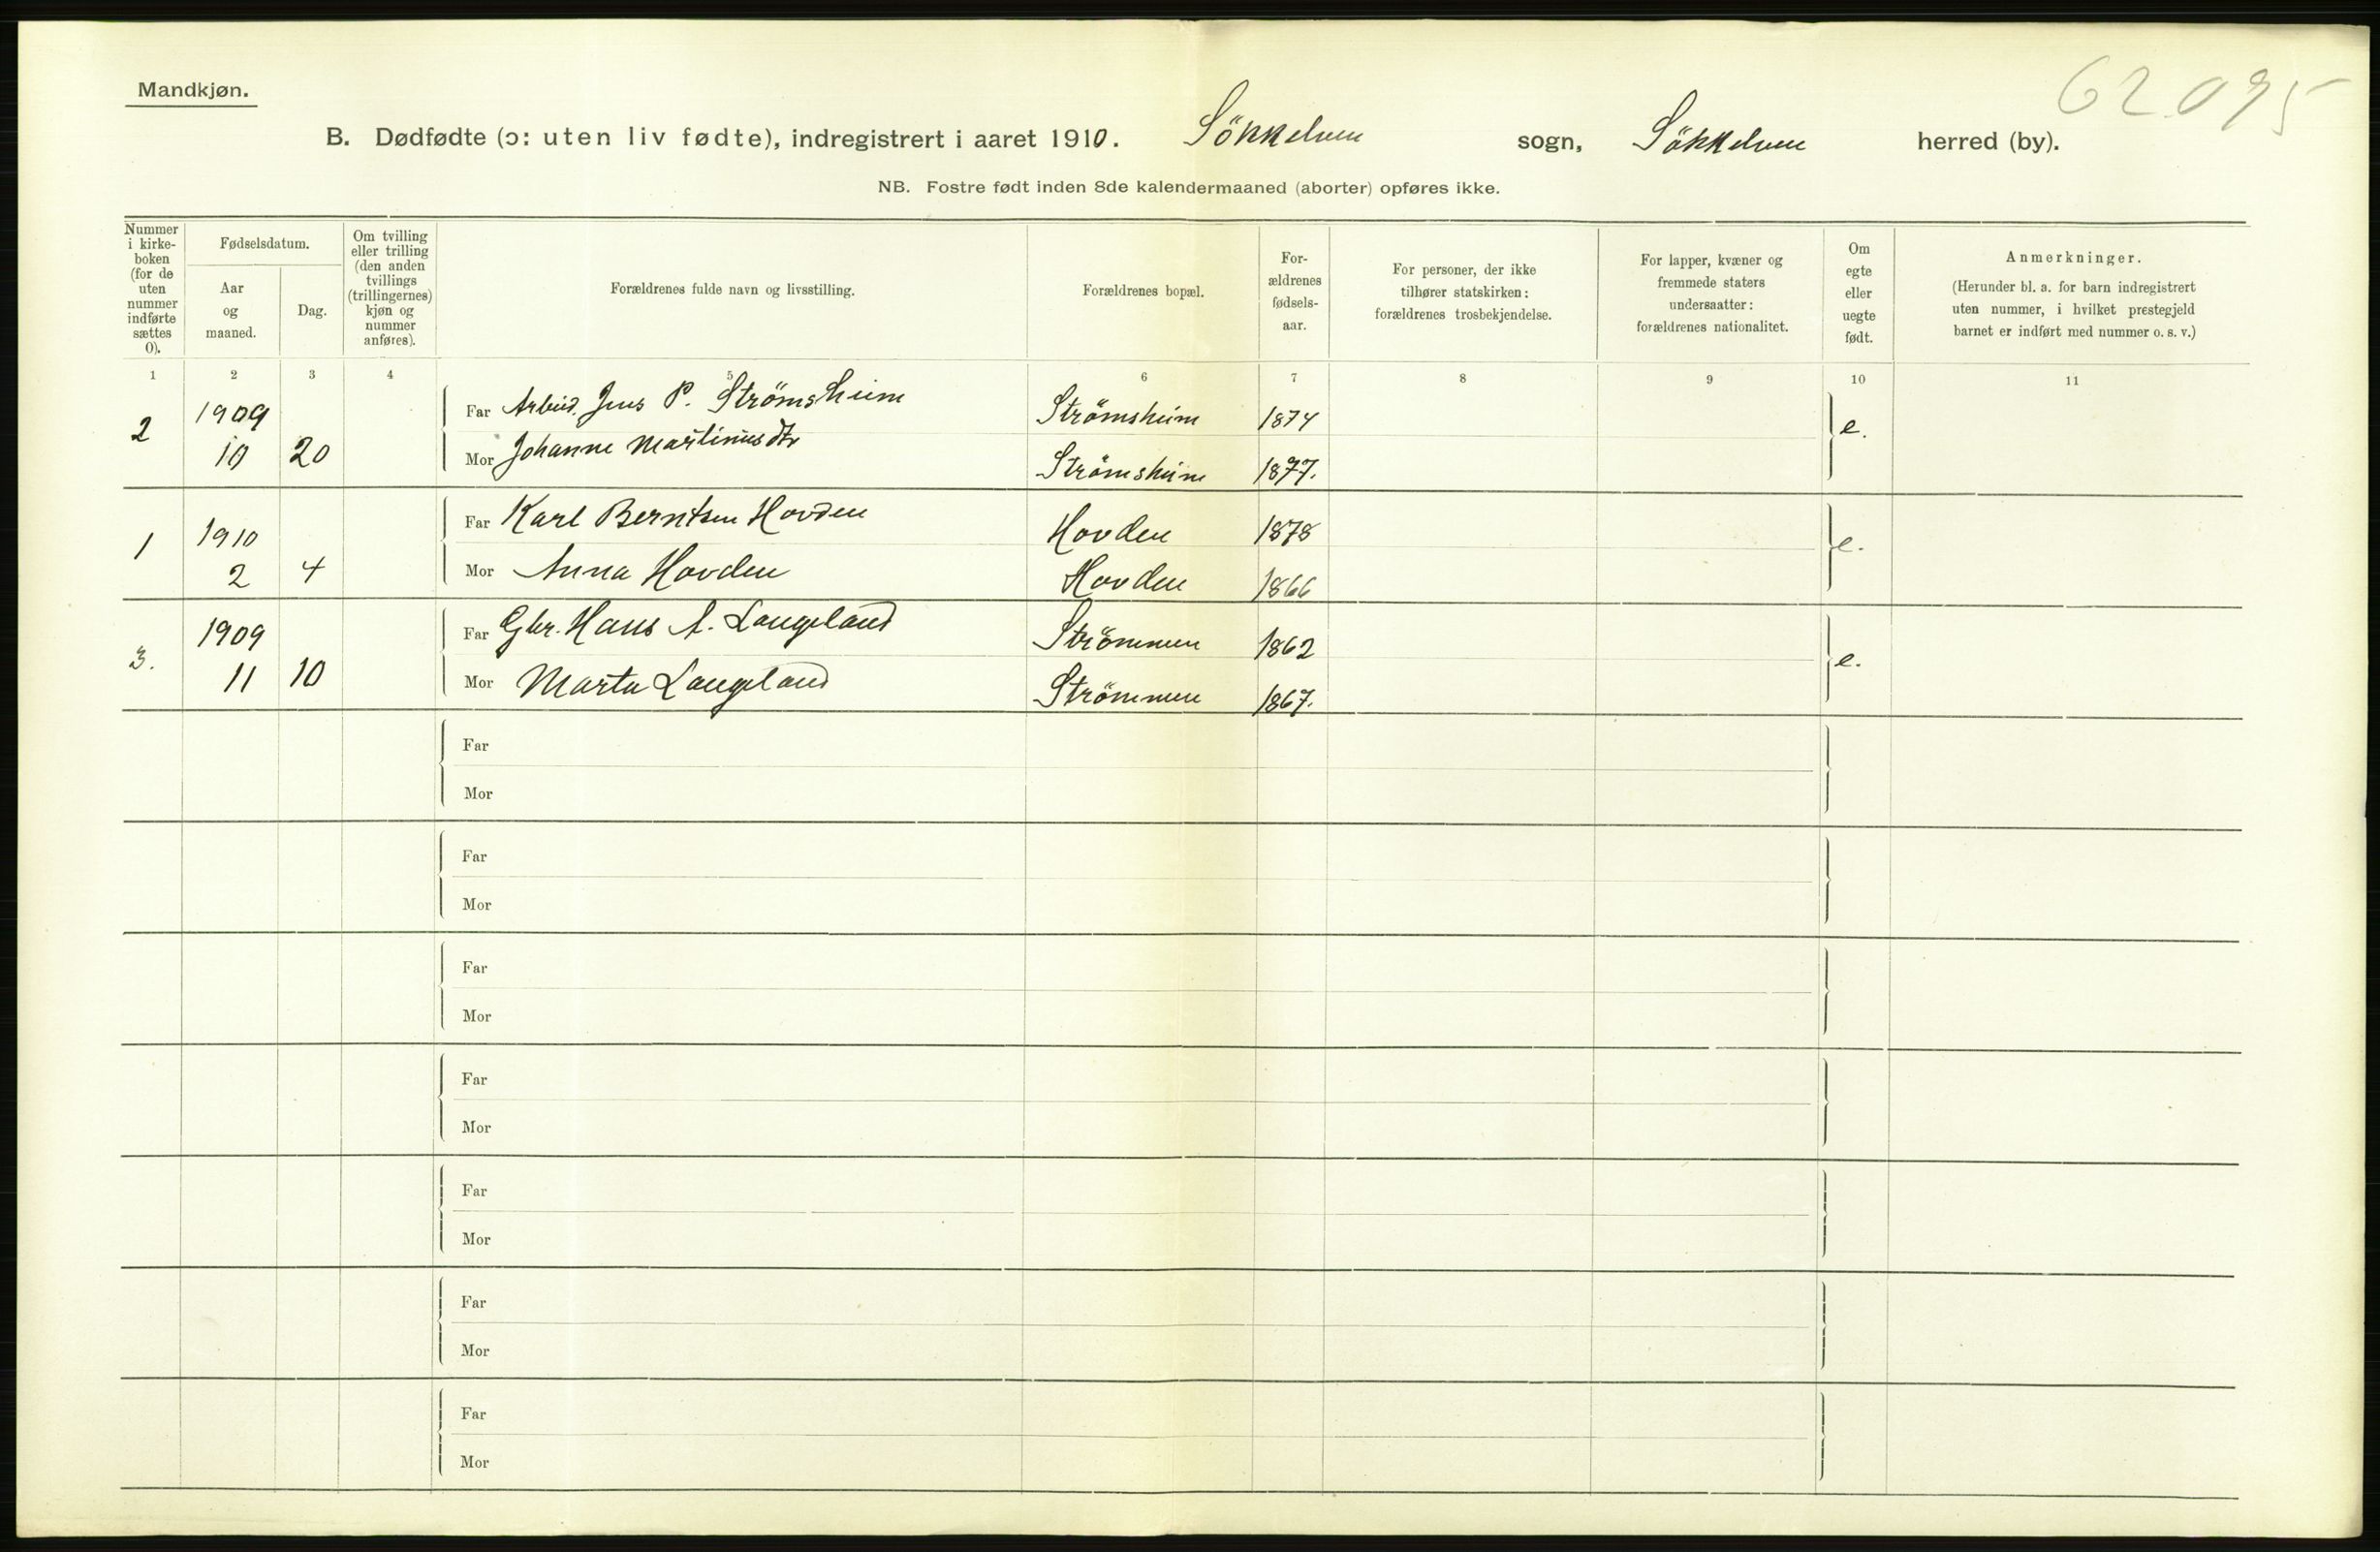 Mandkjøn.
62.095
B. Dødfødte (ɔ: uten liv fødte), indregistrert i aaret 1910. Sökkelven sogn, Sökkelven herred (by).
NB. Fostre født inden 8de kalendermaaned (aborter) opføres ikke.
Nummer
i kirke-
boken
(for de
uten
nummer
indførte
sættes
0).
Fødselsdatum.
Aar
og
maaned.
Dag.
Om tvilling
eller trilling
(den anden
tvillings
(trillingernes)
kjøn og
nummer
anføres).
Forældrenes fulde navn og livsstilling.
Forældrenes bopæl.
For-
ældrenes
fødsels-
aar.
For personer, der ikke
tilhører statskirken:
forældrenes trosbekjendelse.
For lapper, kvæner og
fremmede staters
undersaatter:
forældrenes nationalitet.
Om
egte
eller
uegte
født.
Anmerkninger.
(Herunder bl. a. for barn indregistrert
uten nummer, i hvilket prestegjeld
barnet er indført med nummer o. s. v.)
1 2 3 4 5 6 7 8 9 10 11
2 1909 Far Arbeid. Jens P. Strömsheim Strömsheim 1874 e.
10 20 Mor Johanne Martinusdtr Strömsheim 1877.
1 1910 Far Karl Berntsen Hovden Hovden 1878 e.
2 4 Mor Anna Hovden Hovden 1866
3. 1909 Far Gbr. Hans A. Langeland Strömmen 1862 e.
11 10 Mor Marta Langeland Strömmen 1867.
Far
Mor
Far
Mor
Far
Mor
Far
Mor
Far
Mor
Far
Mor
Far
Mor